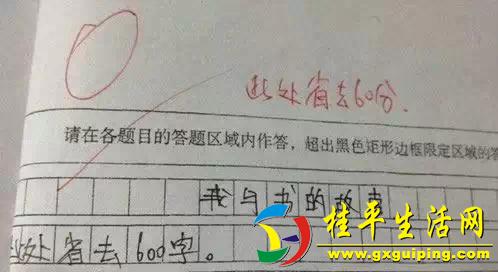 此处省去60分.
请在各题目的答题区域内作答，超出黑色矩形边框限定区域的答
我与书的故事
此处省去600字。
桂平生活网
www.gxguiping.com